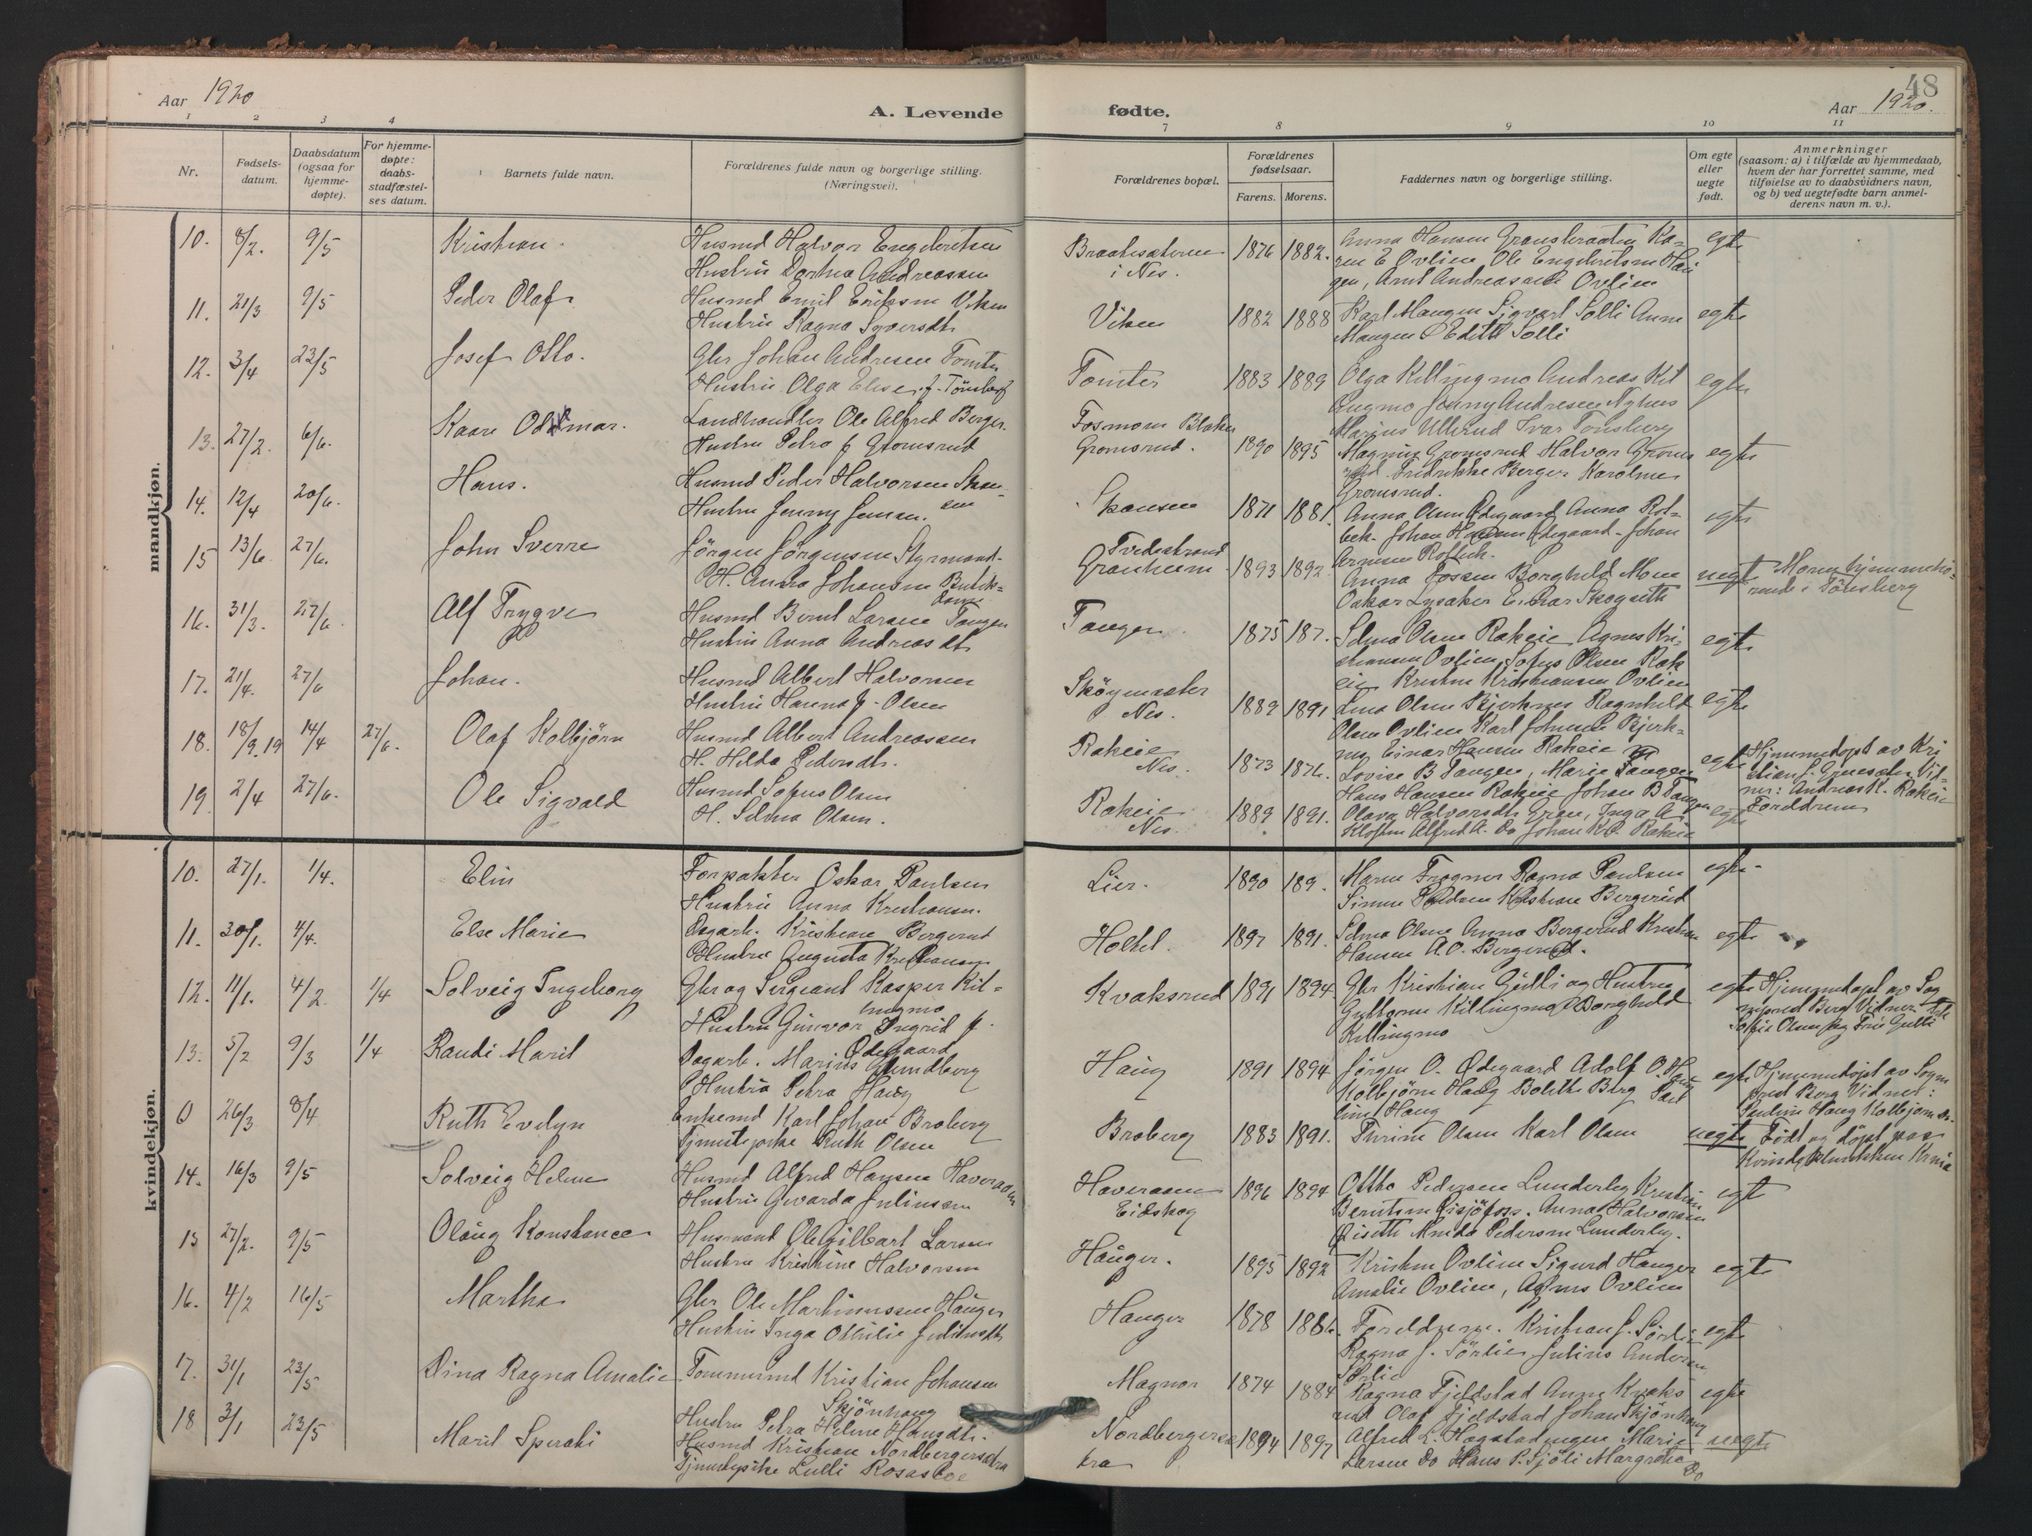 48
Aar 1920
A. Levende fødte.
Aar 1920.
1 2 3 4 7 8 9 10 11
Nr.
Fødsels-
datum.
Daabsdatum
(ogsaa for
hjemme-
døpte).
For hjemme-
døpte:
daabs-
stadfæstel-
ses datum.
Barnets fulde navn.
Forældrenes fulde navn og borgerlige stilling.
(Næringsvei).
Forældrenes bopæl.
Forældrenes
fødselsaar.
Farens. Morens.
Faddernes navn og borgerlige stilling.
Om egte
eller
uegte
født.
Anmerkninger
(saasom: a) i tilfælde av hjemmedaab,
hvem der har forrettet samme, med
tilføielse av to daabsvidners navn,
og b) ved uegtefødte barn anmel-
derens navn m. v.).
mandkjøn.
10. 8/2. 9/5 Kristian. Husmd Halvor Engebretsen
Hustru Dorthea Andreassen
Braatesæteren
i Nes.
1876 1882. Anna Hansen Ka-
ren E Ovlien Ole Engebretsen Hau
gen, Arnt Andreassen Ovlien
egte
11. 21/3 9/5 Peder Olaf. Husmd Emil Eriksen Viken
Hustru Ragna Syversdtr
Viken 1882 1888 Karl Mangen Sigvart Solli Anne
Mangen Edith Solli
egte
12. 3/4 23/5 Josef Otto. Gbr Johan Andresen Tomter
Hustru Olga Elise f. Tønsberg
Tomter 1883 1889 Olga Killingmo Andreas Kil
lingmo Jenny Andresen Nyhus
Marius Ullerud Ivar Tonsberg
egte
13. 27/2. 6/6. Kaare Oddmar. Landhandler Ole Alfred Berger
Hustru Petra f Gromsrud
Fosmom Blaker
Gromsrud. 1890 1895 Magnus Gromsrud Halvor Groms
rud Fredrikke Berger Karoline
Gromsrud.
egte
14. 12/4 20/6. Hans. Husmd Peder Halvorsen Skan-
sen
Hustru Jenny Jensen.
Skansen 1871 1881. Anna Olsen Ødegaard Anna Rot-
bek. Johan Hansen Ødegaard. Johan
egte
15 13/6 27/6. John Sverre Jørgen Jørgensen Styrmand
H. Anna Johansen Butik-
dame
Tvedestrand
Granheim 1893 1892 Anna Fossen Borghild Moen
Oskar Lysaker Einar Skogseth
uegte Moren hjemmehø-
rende i Tønsberg
16. 31/3. 27/6. Alf Trygve Husmd Bernt Larsen Tangen
Hustru Anna Andreasdt
Tangen. 1875 187. Selma Olsen Rakeie Agnes Kri-
stiansen Ovlien, Sofus Olsen Rak
eie Kristen Kristiansen Ovlien
egte
17. 21/4. 27/6 Johan. Husmd Albert Halvorsen
Hustru Hanna f. Olsen
Skøgmaster
Nes. 1889 1891. Lina Olsen Bjerknes Ragnhild
Olsen Ovlien Karl Johnsen Bjerk-
nes Einar Hansen Rakeie
egte
18. 18/9.19 14/4 27/6. Olaf Kolbjørn Husmd Albert Andreassen
H. Hilda Pedersdtr.
Rakeie
Nes. 1873 1876. Lovise B Tangen, Marie Tangen
Hans Hansen Rakeie Johan B Tangen
egte Hjemmedøpt av Kri
stian J. Vid-
ner: Andreas K. Rakeie
Forældrene
19. 2/4 27/6. Ole Sigvald Husmd Sofus Olsen
H. Selma Olsen.
Rakeie
Nes. 1889 1891. Olava Halvorsdtr Gren, Inga A.
Klosten Alfred A. Do Johan K.O. Rakeie
egte
kvindekjøn.
10. 27/1. 1/4. Elin Forpakter Oskar Paulsen
Hustru Anna Kristiansen.
Lier. 1890 189. Maren Frogner Ragna Paulsen
Simen Paulsen Kristian Bergerud
egte.
11. 20/1. 4/4. Else Marie Dagarb. Kristian Bergerud
Hustru Augusta Kristiansen
Holtet. 1897 1891. Selma Olsen Anna Bergerud Kristian
Hansen A.O. Bergerud.
egte
12. 11/1. 4/2 1/4 Solveig Ingeborg Gbr og Sergeant Kasper Kil-
lingmo
Hustru Gunvor Ingrid f.
Ødegaard
Kvaksrud 1891 1894 Gbr Kristian Gulli og Hustru
Guttorm Killingmo Borghild
Killingmo
egte Hjemmedøpt av Sog
neprest Berg Vidner
Sofie Olsen Gulli
13. 5/2 9/3 1/4 Randi Marit Dagarb. Marius Sundberg
Hustru Petra Haug
Haug 1891 1894 Jørgen O. Ødegaard Adolf O. Haug
Kolbjørn Haug Bolette Berg Paul
ine Haug
egte Hjemmedøpt av Sogn
prest Berg Vidner:
Pauline Haug Kolbjørn Do.
0 26/3 8/4 Ruth Evelyn Enkemd Karl Johan Broberg
Tjenestepike Ruth Olsen
Broberg 1883 1891. Thrine Olsen Karl Olsen uegte Født og døpt paa
Kvindeklinikken Krnia
14. 16/3 9/5 Solveig Helene Husmd Alfred Hansen Haveraaen
Hustru Gevarda Juliussen
Haveraaen
Eidskog 1896 1894 Ottho Pedersen Lunderby Kristian
Berntsen Anna Halvorsen
Riseth Minda Pedersen Lunderby.
egte
15 27/2. 9/5 Olaug Konstance Husmand Ole Gilbart Larsen
Hustru Kristine Halvorsen
Hauger. 1895 1892 Kristen Ovlien Sigurd Hauger
Amalie Ovlien, Agnes Ovlien
egte
16. 4/2 16/5 Martha Gbr Ole Martinussen Hauger
Hustru Inga Othilie Juliusdtr
Hauger 1878 1886. Foreldrene. Kristian J. Sørlie
Ragna J. Sørlie, Julius Andersen
Sørlie
egte
17. 31/1 23/5 Dina Ragna Amalie Tømmermd Kristian Johansen
Skjønhaug
Hustru Petra Helene Hansdtr.
Magnor 1874 1884 Ragna Fjeldstad Anne Kvaks
rud Olaf Fjeldstad Johan Skjønhaug
egte
18 3/1 23/5 Marit Sperati Husmd Kristian Nordbergersætra
Tjenestepike Lulli Rosasko
Nordbergersæ
tra 1894 1897 Alfred L. Hogstadengen Marie
Larsen Do Hans P. Sjøli Margrethe
Do
uegte